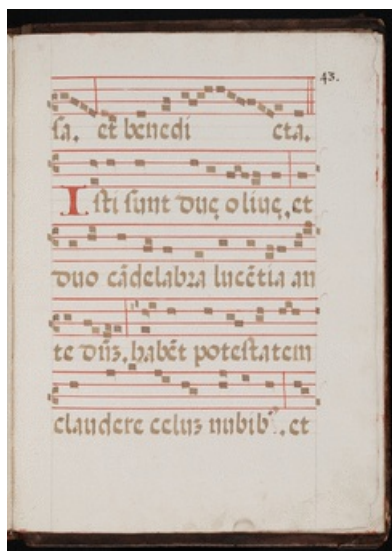 43.
sa. et benedi cta.
Isti sunt duę oliuę, et
duo cãdelabra lucẽtia an
te dñʒ. habẽt potestatem
claudere celuʒ nubibꝰ. et